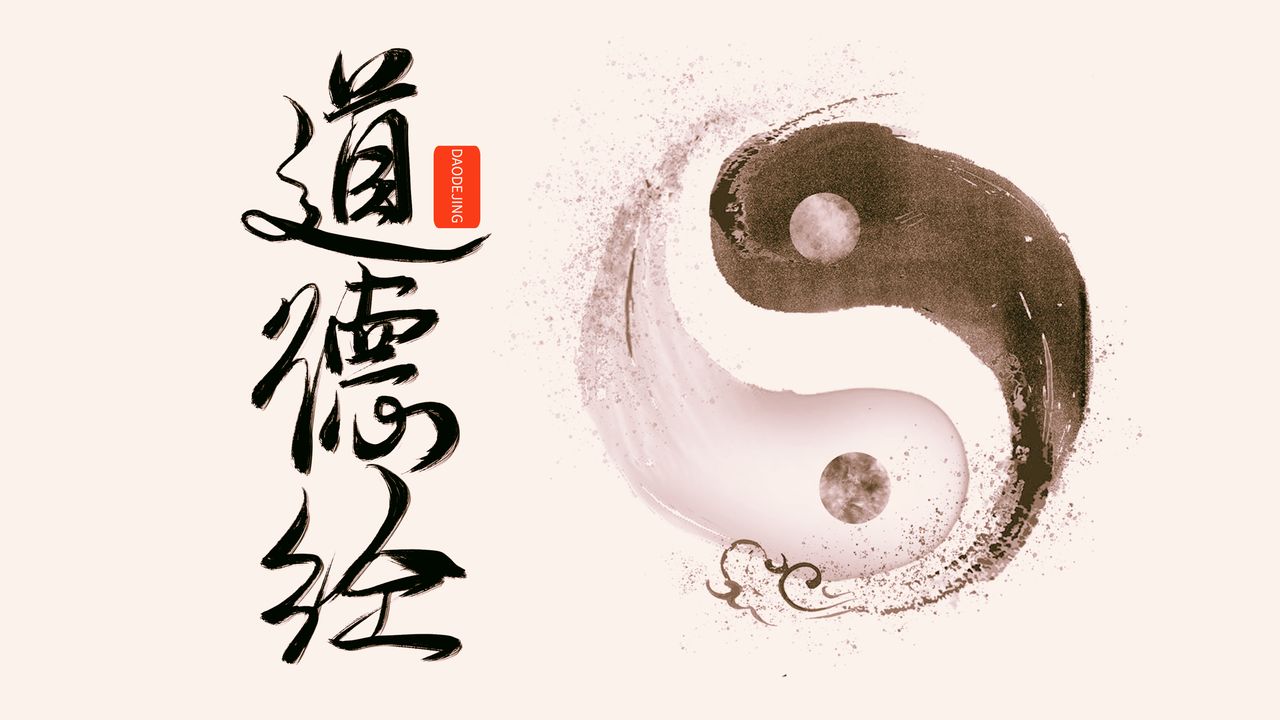 道德经
DAODEJING